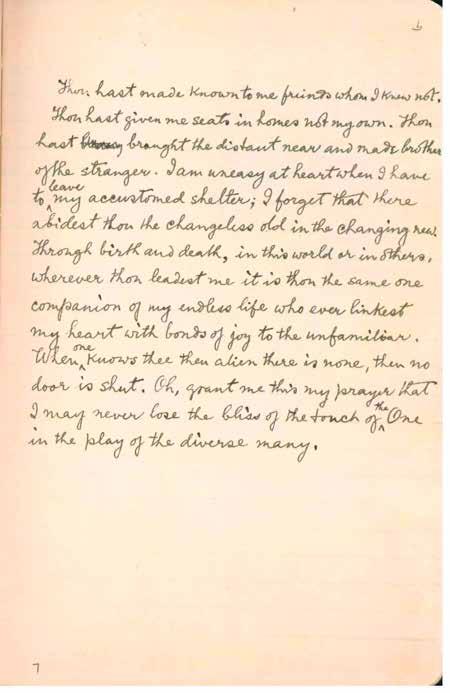 Thou hast made known to me friends whom I knew not.
Thou hast given me seats in homes not my own. Thou
hast brought the distant near and made brother
of the stranger. I am uneasy at heart when I have
to leave my accustomed shelter; I forget that there
abidest thou the changeless old in the changing new.
Through birth and death, in this world or in others,
wherever thou leadest me it is thou the same one
companion of my endless life who ever linkest
my heart with bonds of joy to the unfamiliar.
When one knows thee then alien there is none, then no
door is shut. Oh, grant me this my prayer that
I may never lose the bliss of the touch of the One
in the play of the diverse many.
7